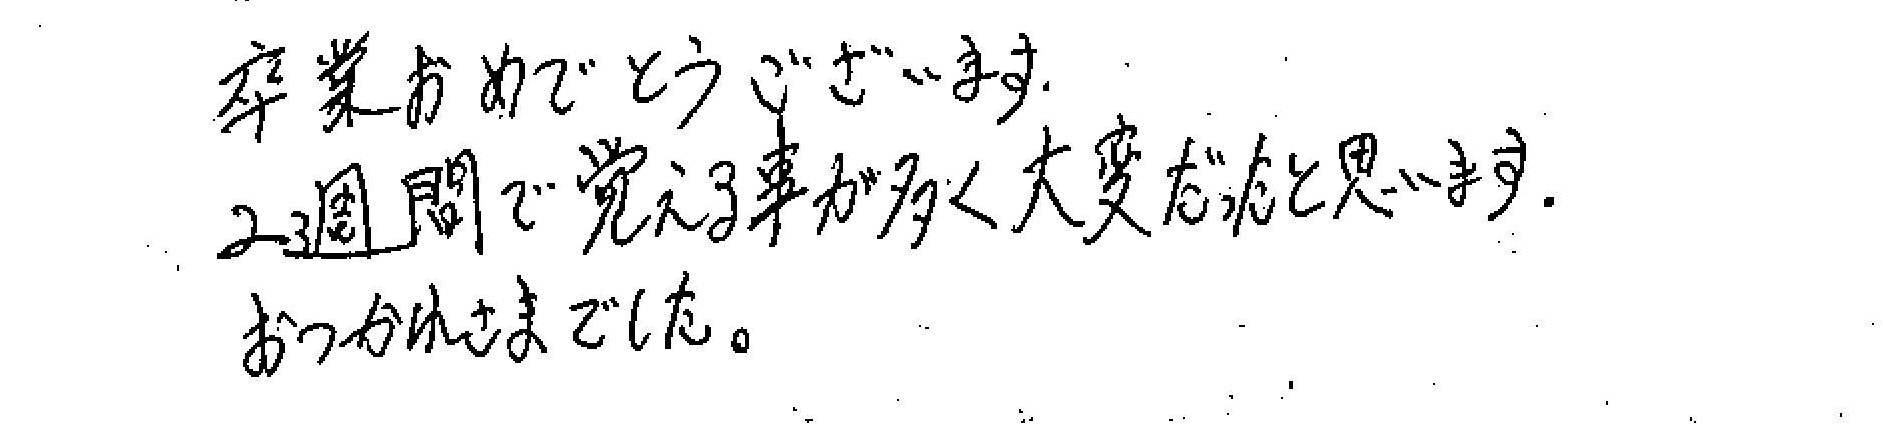 卒業おめでとうございます.
2週間で覚える事が多く大変だったと思います.
おつかれさまでした。